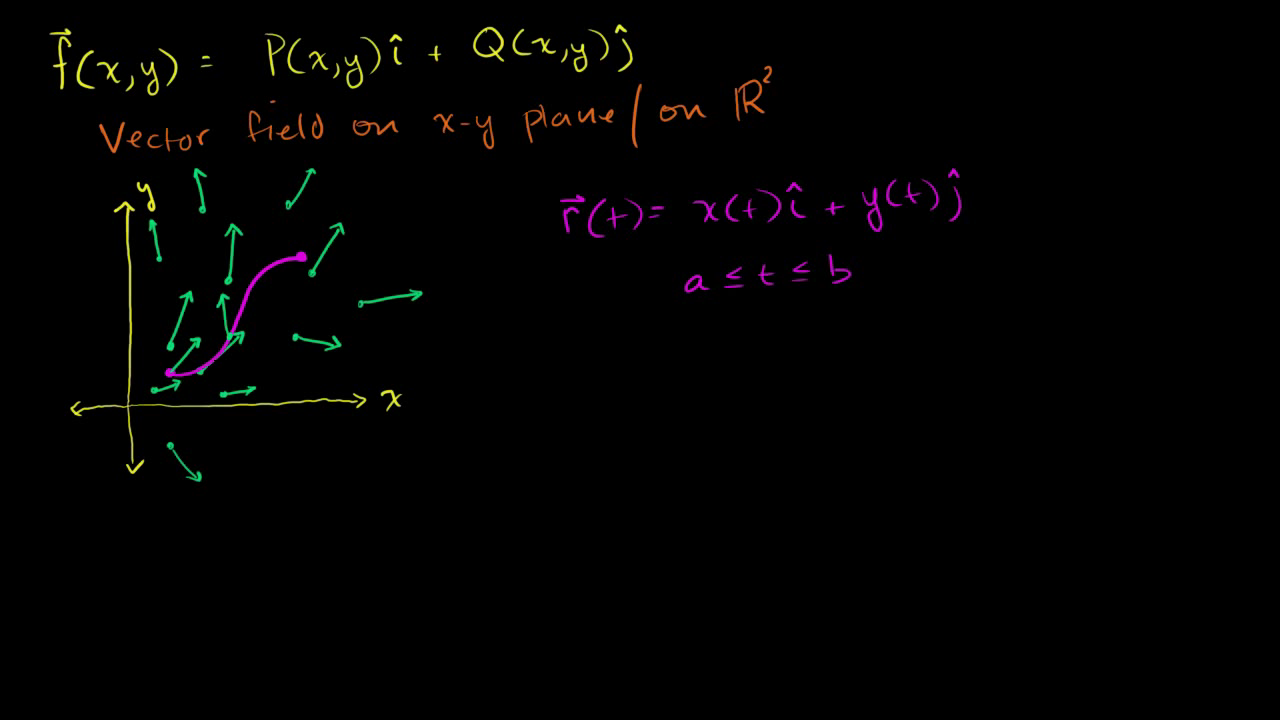 f⃗(x,y) = P(x,y)î + Q(x,y)ĵ
Vector field on x-y plane / on ℝ²
y
r⃗(t) = x(t)î + y(t)ĵ
a ≤ t ≤ b
x